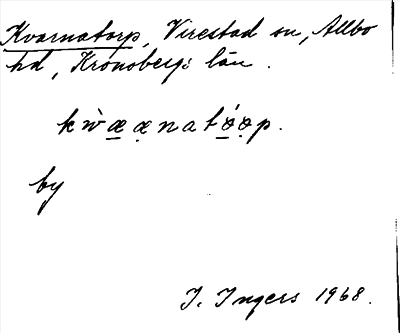 Kvarnatorp, Virestad sn, Allbo
hd, Kronobergs län.
kẁæ̲æ̣natǿ̲ø̣p.
by
I. Ingers 1968.